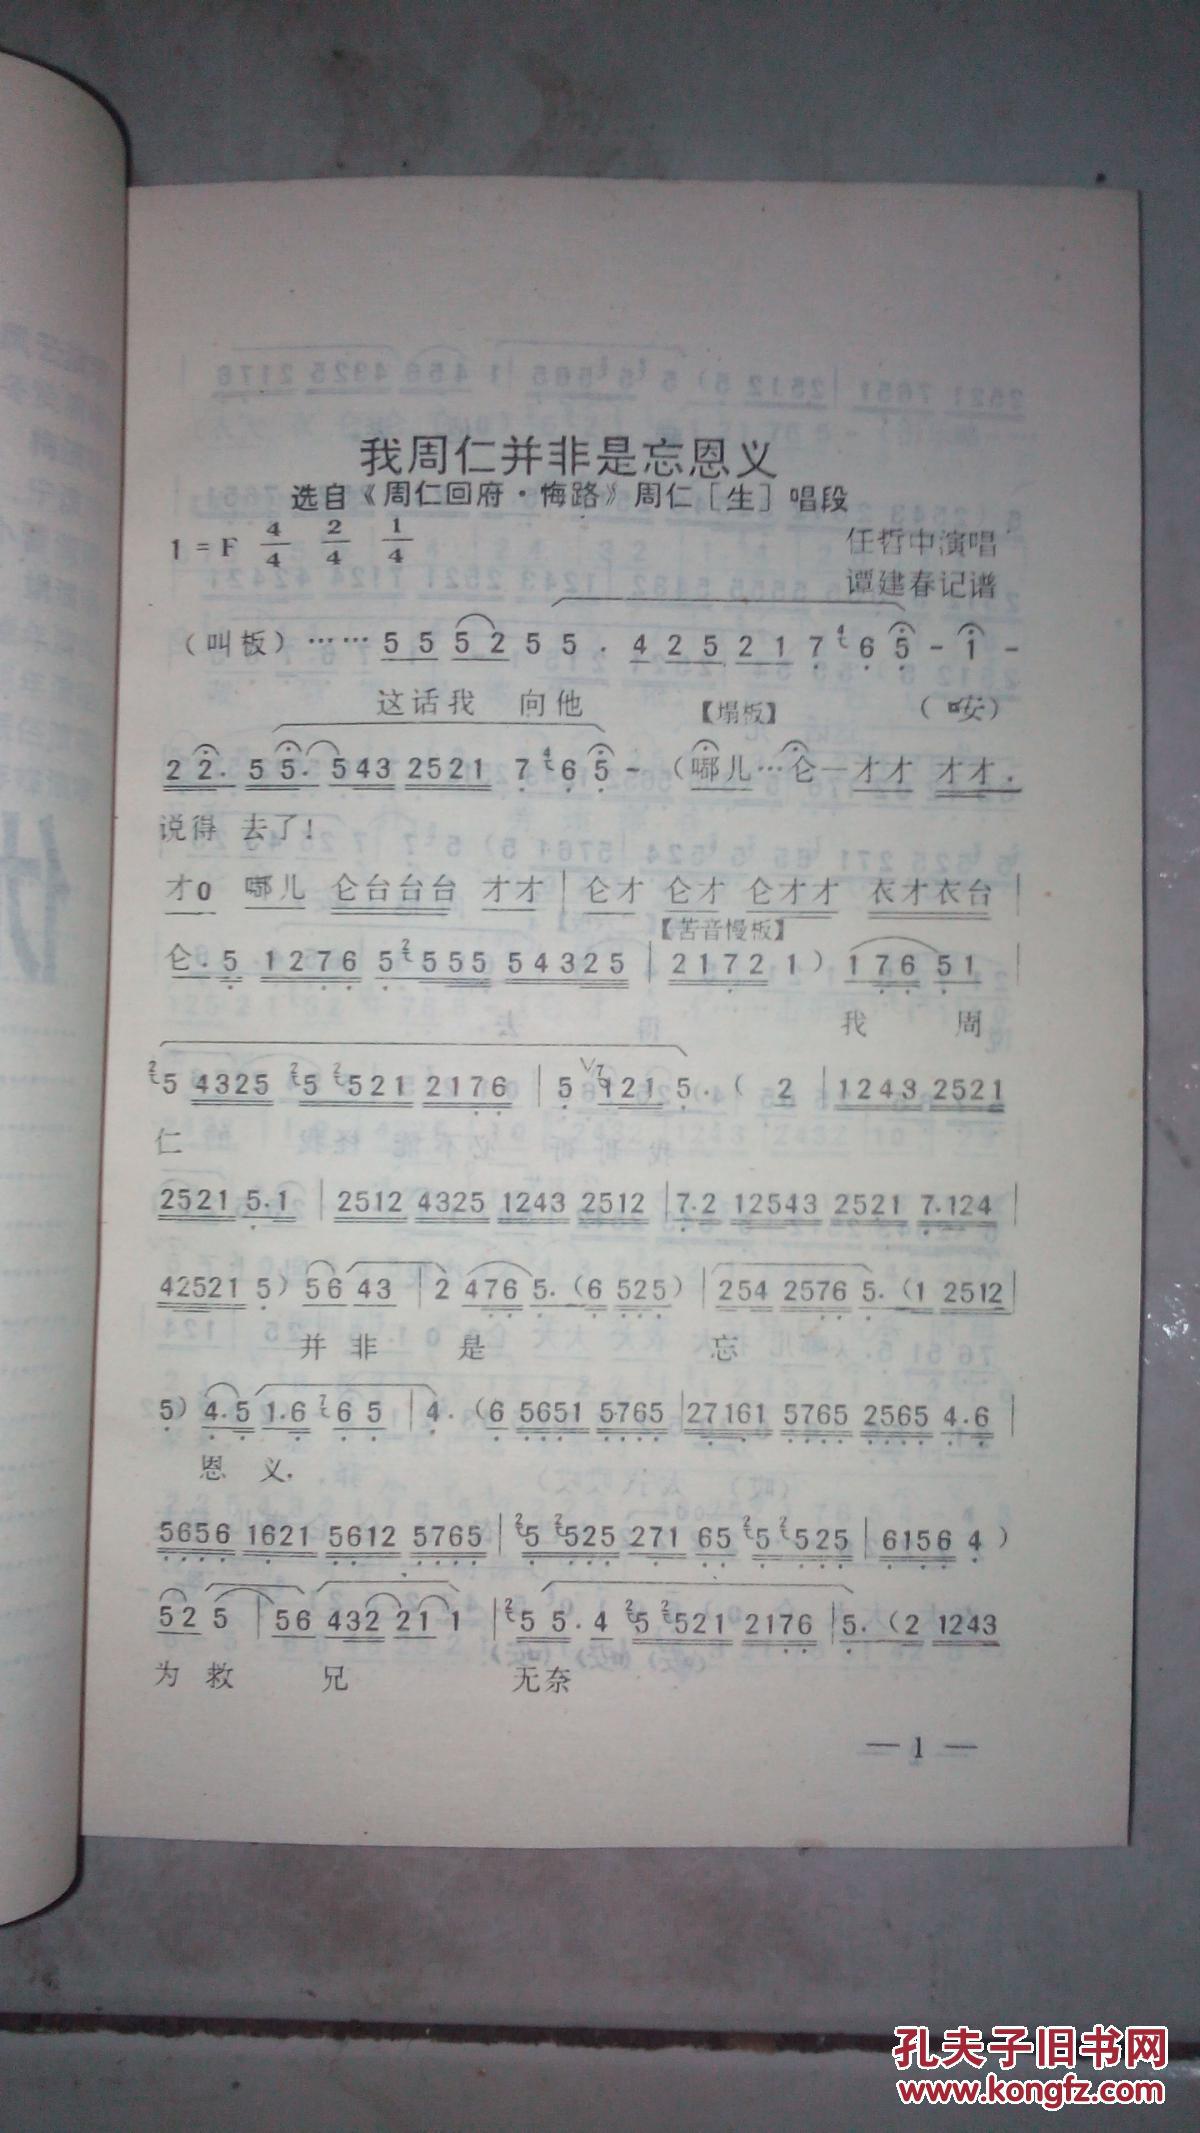 我周仁并非是忘恩义
选自《周仁回府·悔路》周仁［生］唱段
1=F 4/4 2/4 1/4
任哲中演唱
谭建春记谱
（叫板）…… 5 5 5 2 5 5 . 4 2 5 2 1 7 6 5 - 1 -
这话我 向他 【塌板】 （安）
2 2. 5 5. 543 2521 7 6 5 - （哪儿…仑—才才 才才.
说得 去了！
才0 哪儿 仑台台台 才才 | 仑才 仑才 仑才才 衣才衣台 |
【苦音慢板】
仑.5 1276 5 555 54325 | 2172 1） 176 51 |
我 周
5 4325 5 521 2176 | 5 121 5.（ 2 | 1243 2521
仁
2521 5.1 | 2512 4325 1243 2512 | 7.2 12543 2521 7.124 |
42521 5） 56 43 | 2 476 5.（6 525） | 254 2576 5.（1 2512 |
并 非 是 忘
5） 4.5 1.6 6 5 | 4.（6 5651 5765 | 27161 5765 2565 4.6 |
恩 义，
5656 1621 5612 5765 | 5 525 271 65 5 525 | 6156 4 ）
52 5 | 56 432 21 1 | 5 5.4 5 521 2176 | 5.（2 1243
为 救 兄 无奈
— 1 —
孔夫子旧书网
www.kongfz.com